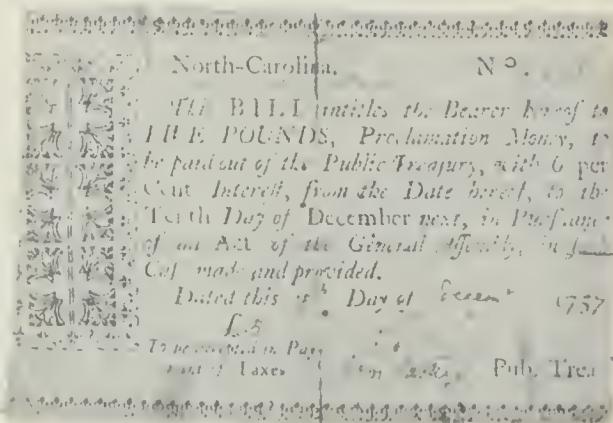 North-Carolina. No.
THE BILL intitles the Bearer hereof to
FIVE POUNDS, Proclamation Money, to
be paid out of the Public Treaſury, with 6 per
Cent Intereſt, from the Date hereof, to the
Tenth Day of December next, in Purſuance
of an Act of the General Aſſembly, in
Caſ made and provided.
Dated this Day of Decem 1757
£.5
To be accepted in Pay-
ment of Taxes
Pub. Trea